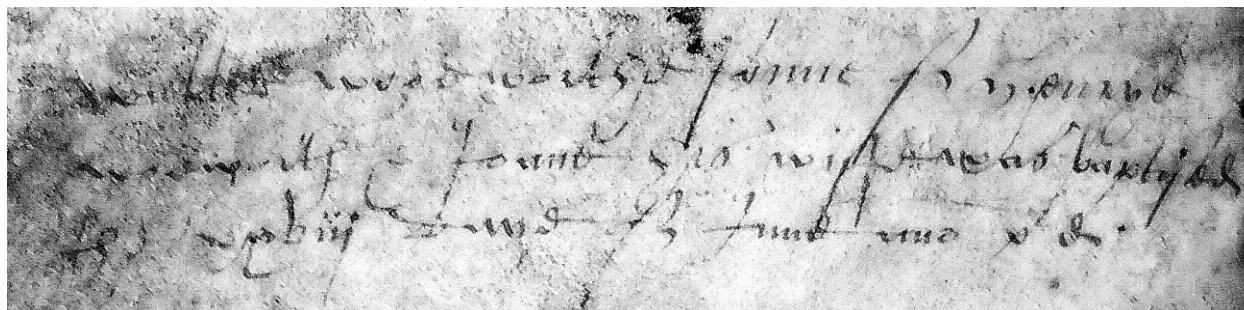 wyllm woodworthe sonne of Henrye
wodworth & Jonne his wiffe was baptised
the xxviij daye of June anno p'd